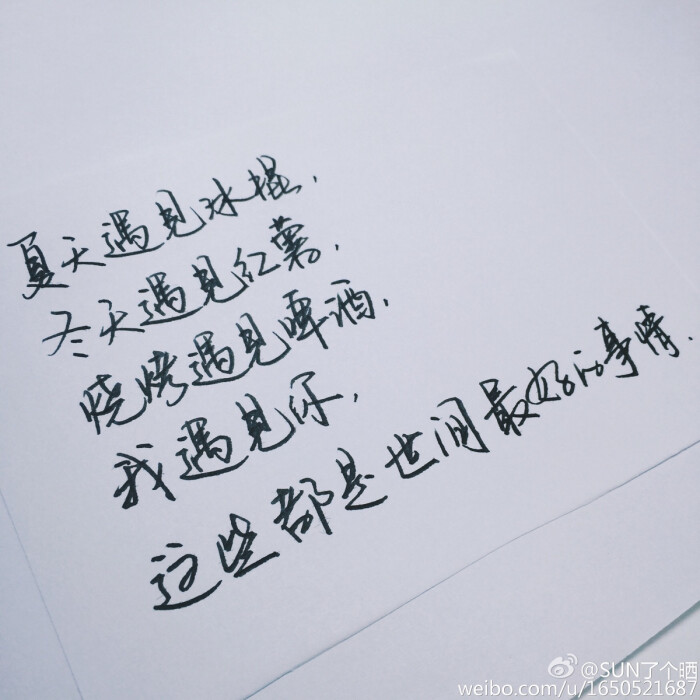 夏天遇见冰棍，
冬天遇见红薯，
烧烤遇见啤酒，
我遇见你，
这些都是世间最好的事情.
@SUN了个晒
weibo.com/u/1650521687